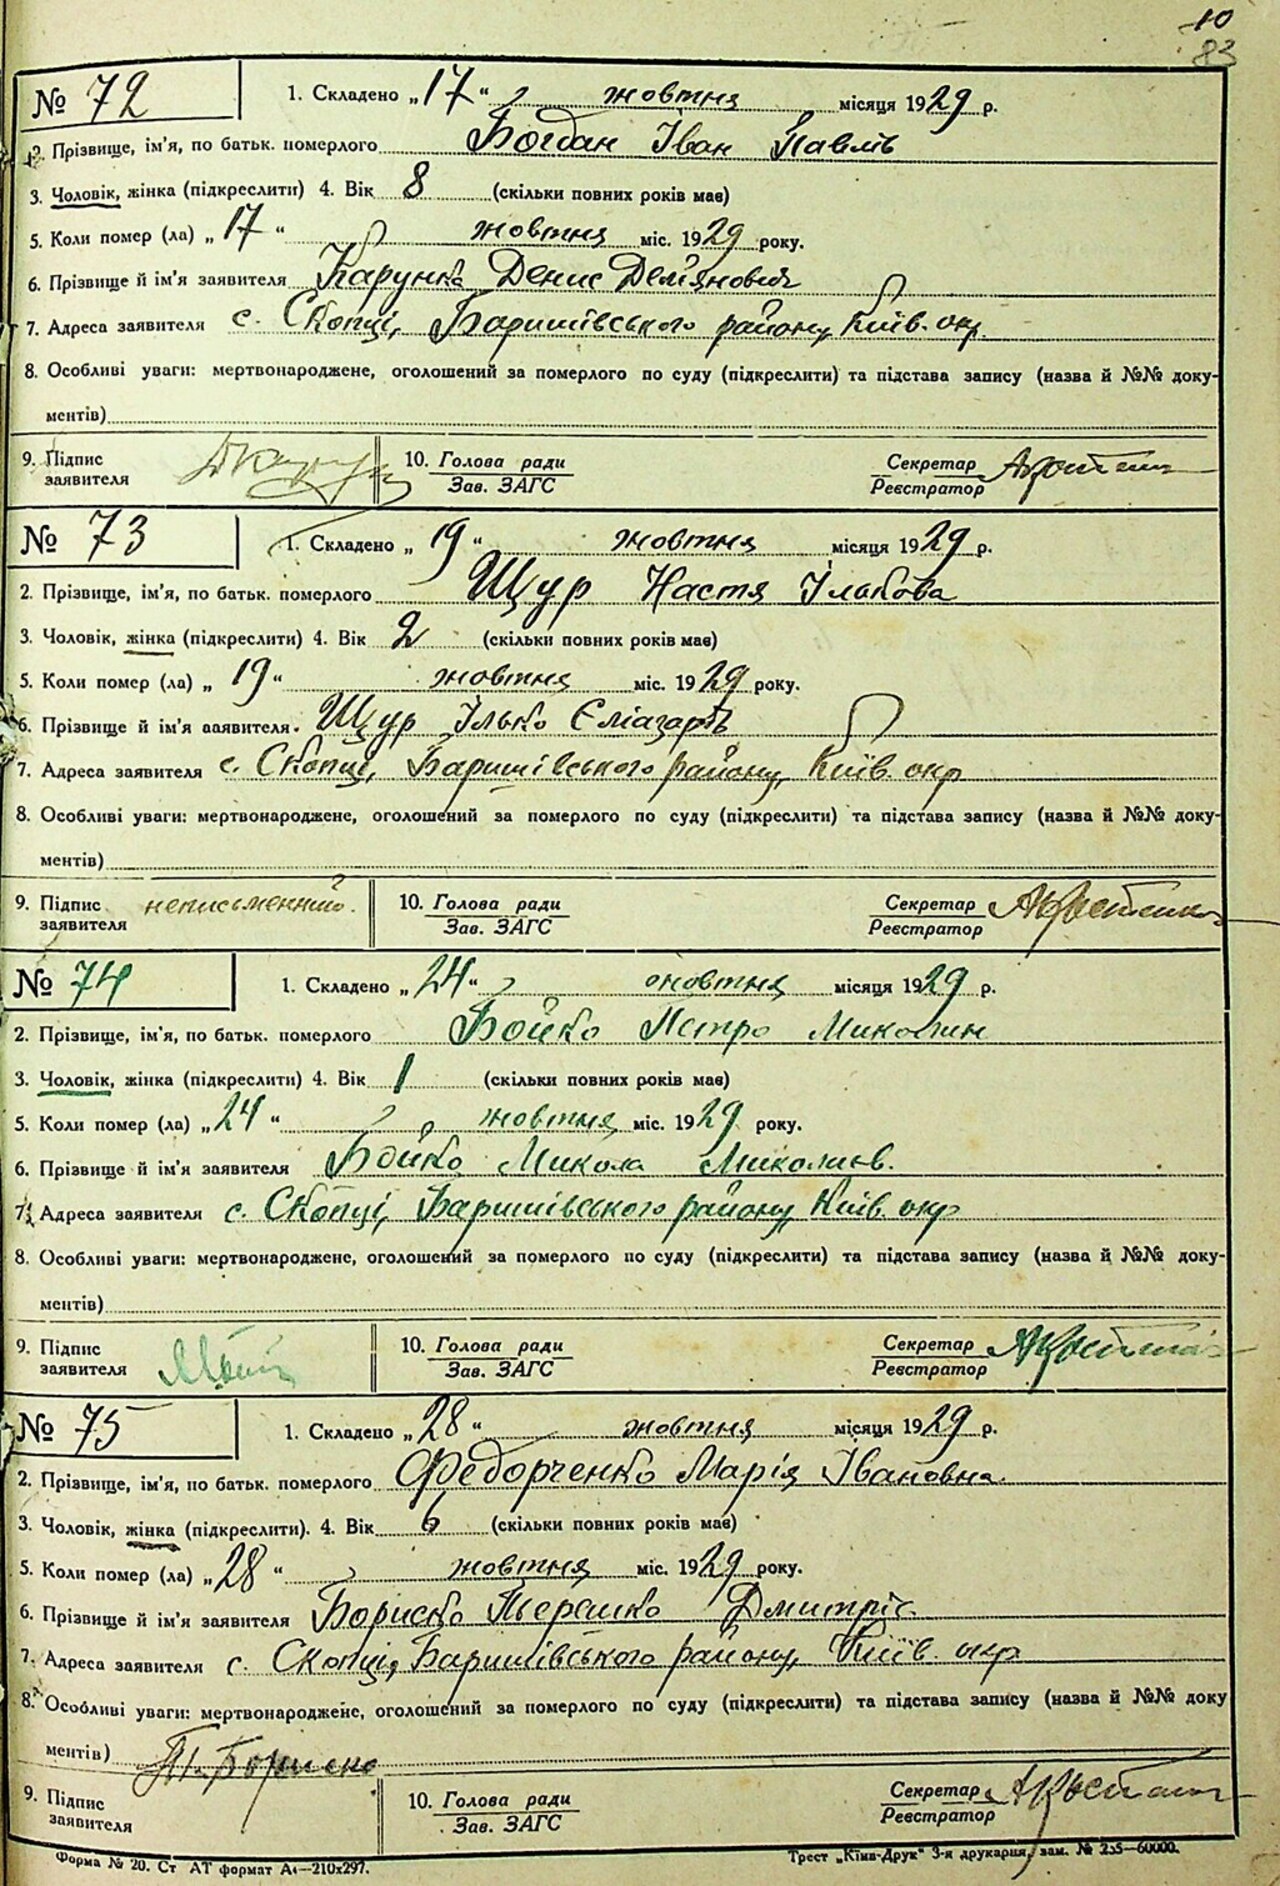 10
83
№ 72
1. Складено „17“ жовтня місяця 1929 р.
2. Прізвище, ім'я, по батьк. померлого Богдан Іван Павлів
3. Чоловік, жінка (підкреслити) 4. Вік 8 (скільки повних років має)
5. Коли помер (ла) „17“ жовтня міс. 1929 року.
6. Прізвище й ім'я заявителя Карунка Денис Дем'янович
7. Адреса заявителя с. Скопці, Баришівського району, Київ. окр.
8. Особливі уваги: мертвонароджене, оголошений за померлого по суду (підкреслити) та підстава запису (назва й №№ доку-
ментів)
9. Підпис заявителя
10. Голова ради
Зав. ЗАГС
Секретар
Реєстратор
№ 73
1. Складено „19“ жовтня місяця 1929 р.
2. Прізвище, ім'я, по батьк. померлого Щур Настя Ількова
3. Чоловік, жінка (підкреслити) 4. Вік 2 (скільки повних років має)
5. Коли помер (ла) „19“ жовтня міс. 1929 року.
6. Прізвище й ім'я заявителя. Щур Ілько Єліазарів
7. Адреса заявителя с. Скопці, Баришівського району, Київ. окр
8. Особливі уваги: мертвонароджене, оголошений за померлого по суду (підкреслити) та підстава запису (назва й №№ доку-
ментів)
9. Підпис заявителя неписьменний.
10. Голова ради
Зав. ЗАГС
Секретар
Реєстратор
№ 74
1. Складено „24“ жовтня місяця 1929 р.
2. Прізвище, ім'я, по батьк. померлого Бойко Петро Миколин
3. Чоловік, жінка (підкреслити) 4. Вік 1 (скільки повних років має)
5. Коли помер (ла) „24“ жовтня міс. 1929 року.
6. Прізвище й ім'я заявителя Бойко Микола Миколаєв.
7. Адреса заявителя с. Скопці, Баришівського району, Київ. окр
8. Особливі уваги: мертвонароджене, оголошений за померлого по суду (підкреслити) та підстава запису (назва й №№ доку-
ментів)
9. Підпис заявителя
10. Голова ради
Зав. ЗАГС
Секретар
Реєстратор
№ 75
1. Складено „28“ жовтня місяця 1929 р.
2. Прізвище, ім'я, по батьк. померлого Федорченко Марія Івановна.
3. Чоловік, жінка (підкреслити). 4. Вік 6 (скільки повних років має)
5. Коли помер (ла) „28“ жовтня міс. 1929 року.
6. Прізвище й ім'я заявителя Бориско Терешко Дмитріє.
7. Адреса заявителя с. Скопці, Баришівського району, Київ. окр
8. Особливі уваги: мертвонароджене, оголошений за померлого по суду (підкреслити) та підстава запису (назва й №№ доку
ментів)
Бориско
9. Підпис заявителя
10. Голова ради
Зав. ЗАГС
Секретар
Реєстратор
Форма № 20. Ст АТ формат А4—210х297.
Трест „Київ-Друк“ 3-я друкарня, зам. № 255—60000.